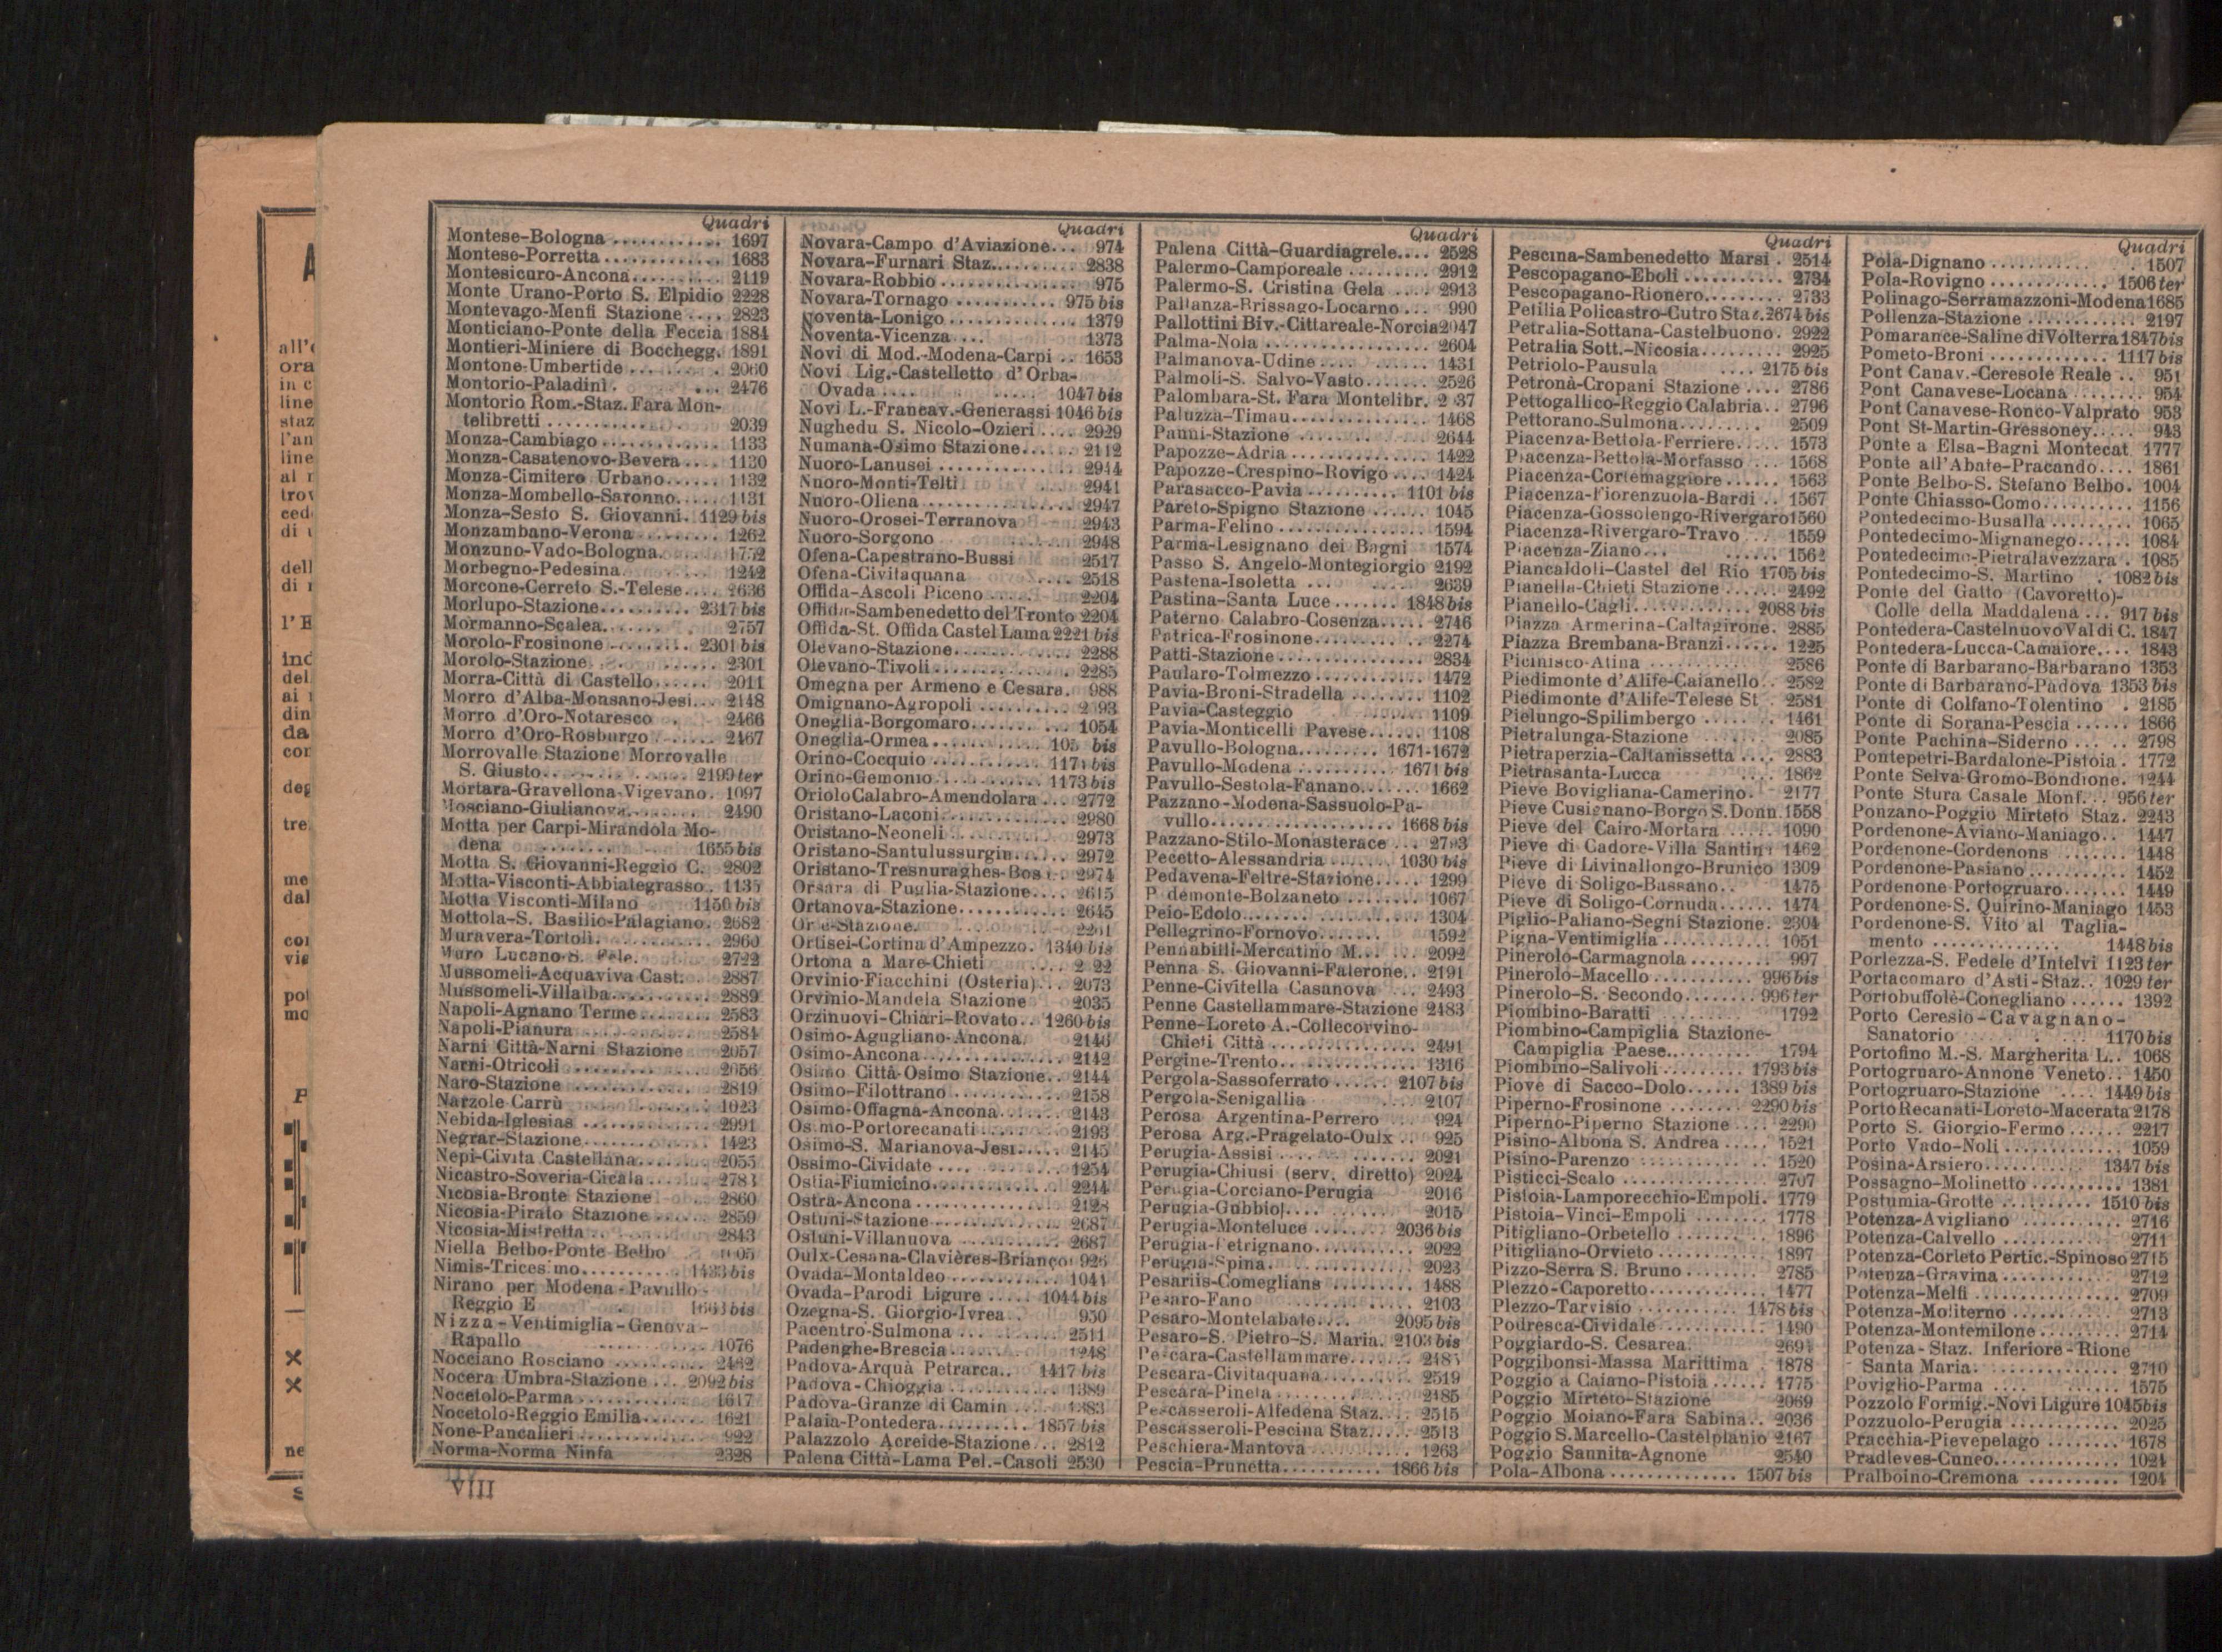 Quadri
Montese-Bologna ............ 1697
Montese-Porretta ............. 1683
Montesicuro-Ancona.......... 2119
Monte Urano-Porto S. Elpidio 2228
Montevago-Menfi Stazione .... 2823
Monticiano-Ponte della Feccia 1884
Montieri-Miniere di Bocchegg. 1891
Montone-Umbertide ........ 2060
Montorio-Paladini . ... 2476
Montorio Rom.-Staz. Fara Mon-
telibretti .............. 2039
Monza-Cambiago ............. 1133
Monza-Casatenovo-Bevera .... 1130
Monza-Cimitero Urbano...... 1132
Monza-Mombello-Saronno..... 1131
Monza-Sesto S. Giovanni. 1129 bis
Monzambano-Verona ......... 1262
Monzuno-Vado-Bologna.
Morbegno-Pedesina. ...... 1242
Morcone-Cerreto S.-Telese.... 2636
Morlupo-Stazione.......... 2317 bis
Mormanno-Scalea. ...... 2757
Morolo-Frosinone ......... 2301 bis
Morolo-Stazione. ........ 2301
Morra-Città di Castello...... 2011
Morro d'Alba-Monsano-Jesi... 2148
Morro d'Oro-Notaresco . 2466
Morro d'Oro-Rosburgo ...... 2467
Morrovalle Stazione Morrovalle
S. Giusto.............. 2199 ter
Mortara-Gravellona-Vigevano. 1097
Mosciano-Giulianova........ 2490
Motta per Carpi-Mirandola Mo-
dena ......... 1655 bis
Motta S. Giovanni-Reggio C. 2802
Motta-Visconti-Abbiategrasso.. 1135
Motta Visconti-Milano 1150 bis
Mottola-S. Basilio-Palagiano. 2682
Muravera-Tortolì. .......... 2960
Muro Lucano-S. Fele. ....... 2722
Mussomeli-Acquaviva Cast. . 2887
Mussomeli-Villalba........... 2889
Napoli-Agnano Terme ........ 2583
Napoli-Pianura ............ 2584
Narni Città-Narni Stazione 2057
Narni-Otricoli ............. 2056
Naro-Stazione ............. 2819
Narzole Carrù ......... 1023
Nebida-Iglesias ............. 2991
Negrar-Stazione............. 1423
Nepi-Civita Castellana........ 2055
Nicastro-Soveria-Cicala .......
Nicosia-Bronte Stazione 2860
Nicosia-Pirato Stazione ...... 2859
Nicosia-Mistretta ........ 2843
Niella Belbo-Ponte Belbo
Nimis-Tricesimo.......... 1433 bis
Nirano per Modena-Pavullo-
Reggio E
Nizza-Ventimiglia-Genova-
Rapallo .......... 1076
Nocciano Rosciano .......... 2482
Nocera Umbra-Stazione ... 2092 bis
Nocetolo-Parma ............ 1617
Nocetolo-Reggio Emilia....... 1621
None-Pancalieri .............. 922
Norma-Norma Ninfa 2328
Quadri
Novara-Campo d'Aviazione... 974
Novara-Furnari Staz.......... 2838
Novara-Robbio .............. 975
Novara-Tornago ........... 975 bis
Noventa-Lonigo ............. 1379
Noventa-Vicenza ... 1373
Novi di Mod.-Modena-Carpi .. 1653
Novi Lig.-Castelletto d'Orba-
Ovada .... ...... 1047 bis
Novi L.-Francav.-Generassi 1046 bis
Nughedu S. Nicolo-Ozieri .... 2929
Numana-Osimo Stazione...... 2112
Nuoro-Lanusei .............. 2944
Nuoro-Monti-Telti .... 2941
Nuoro-Oliena ............... 2947
Nuoro-Orosei-Terranova 2943
Nuoro-Sorgono ........ 2948
Ofena-Capestrano-Bussi 2517
Ofena-Civitaquana .... 2518
Offida-Ascoli Piceno ...... 2204
Offida-Sambenedetto del Tronto 2204
Offida-St. Offida Castel Lama 2221 bis
Olevano-Stazione............ 2288
Olevano-Tivoli .............. 2285
Omegna per Armeno e Cesara. 988
Omignano-Agropoli ..........
Oneglia-Borgomaro.......... 1054
Oneglia-Ormea............ bis
Orino-Cocquio ............ 1171 bis
Orino-Gemonio........... 1173 bis
Oriolo Calabro-Amendolara ... 2772
Oristano-Laconi.............. 2980
Oristano-Neoneli ............ 2973
Oristano-Santulussurgiu...... 2972
Oristano-Tresnuraghes-Bosa .. 2974
Orsara di Puglia-Stazione.... 2615
Ortanova-Stazione............ 2645
Orte-Stazione.
Ortisei-Cortina d'Ampezzo. 1340 bis
Ortona a Mare-Chieti ....
Orvinio-Fiacchini (Osteria)... 2073
Orvinio-Mandela Stazione 2035
Orzinuovi-Chiari-Rovato.. 1260 bis
Osimo-Agugliano-Ancona. 2146
Osimo-Ancona.............. 2142
Osimo Città-Osimo Stazione.. 2144
Osimo-Filottrano ............ 2158
Osimo-Offagna-Ancona....... 2143
Osimo-Portorecanati ..... 2193
Osimo-S. Marianova-Jesi..... 2145
Ossimo-Cividate .... ....... 1254
Ostia-Fiumicino.............. 2244
Ostra-Ancona ............... 2128
Ostuni-Stazione.............. 2687
Ostuni-Villanuova .......... 2687
Oulx-Cesana-Clavières-Briançon 926
Ovada-Montaldeo ............ 1041
Ovada-Parodi Ligure ..... 1044 bis
Ozegna-S. Giorgio-Ivrea. . 950
Pacentro-Sulmona ... ....... 2511
Padenghe-Brescia............ 1248
Padova-Arquà Petrarca.. 1417 bis
Padova-Chioggia ........... 1389
Padova-Granze di Camin .... 1383
Palaia-Pontedera.......... 1857 bis
Palazzolo Acreide-Stazione... 2812
Palena Città-Lama Pel.-Casoli 2530
Quadri
Palena Città-Guardiagrele.... 2528
Palermo-Camporeale ......... 2912
Palermo-S. Cristina Gela .... 2913
Pallanza-Brissago-Locarno ... 990
Pallottini Biv.-Cittareale-Norcia 2047
Palma-Nola ................. 2604
Palmanova-Udine.... ...... 1431
Palmoli-S. Salvo-Vasto....... 2526
Palombara-St. Fara Montelibr.
Paluzza-Timau............... 1468
Panni-Stazione ............. 2644
Papozze-Adria ............... 1422
Papozze-Crespino-Rovigo .... 1424
Parasacco-Pavia .......... 1101 bis
Pareto-Spigno Stazione ...... 1045
Parma-Felino ............... 1594
Parma-Lesignano dei Bagni 1574
Passo S. Angelo-Montegiorgio 2192
Pastena-Isoletta ... ....... 2639
Pastina-Santa Luce....... 1848 bis
Paterno Calabro-Cosenza..... 2746
Patrica-Frosinone............ 2274
Patti-Stazione ............... 2834
Paularo-Tolmezzo ........... 1472
Pavia-Broni-Stradella ........ 1102
Pavia-Casteggio ...... 1109
Pavia-Monticelli Pavese...... 1108
Pavullo-Bologna......... 1671-1672
Pavullo-Modena .......... 1671 bis
Pavullo-Sestola-Fanano...... 1662
Pazzano-Modena-Sassuolo-Pa-
vullo.................... 1668 bis
Pazzano-Stilo-Monasterace ...
Pecetto-Alessandria ....... 1030 bis
Pedavena-Feltre-Stazione..... 1299
Pedemonte-Bolzaneto ........ 1067
Peio-Edolo.................. 1304
Pellegrino-Fornovo....... 1592
Pennabilli-Mercatino M... ... 2092
Penna S. Giovanni-Falerone.. 2191
Penne-Civitella Casanova ... 2493
Penne Castellammare-Stazione 2483
Penne-Loreto A.-Collecorvino-
Chieti Città ............... 2491
Pergine-Trento.............. 1316
Pergola-Sassoferrato ...... 2107 bis
Pergola-Senigallia .... 2107
Perosa Argentina-Perrero ... 924
Perosa Arg.-Pragelato-Oulx .. 925
Perugia-Assisi .............. 2021
Perugia-Chiusi (serv. diretto) 2024
Perugia-Corciano-Perugia 2016
Perugia-Gubbio.... ....... 2015
Perugia-Monteluce ........ 2036 bis
Perugia-Petrignano.......... 2022
Perugia-Spina. .............. 2023
Pesariis-Comeglians ......... 1488
Pesaro-Fano .......... 2103
Pesaro-Montelabate.... 2095 bis
Pesaro-S. Pietro-S. Maria. 2103 bis
Pescara-Castellammare.......
Pescara-Civitaquana......... 2519
Pescara-Pineta ............ 2485
Pescasseroli-Alfedena Staz.... 2515
Pescasseroli-Pescina Staz..... 2513
Peschiera-Mantova .......... 1263
Pescia-Prunetta........... 1866 bis
Quadri
Pescina-Sambenedetto Marsi . 2514
Pescopagano-Eboli ........... 2734
Pescopagano-Rionero......... 2733
Petilia Policastro-Cutro Staz. 2674 bis
Petralia-Sottana-Castelbuono. 2922
Petralia Sott.-Nicosia........ 2925
Petriolo-Pausula .... 2175 bis
Petronà-Cropani Stazione .... 2786
Pettogallico-Reggio Calabria.. 2796
Pettorano-Sulmona......... 2509
Piacenza-Bettola-Ferriere..... 1573
Piacenza-Bettola-Morfasso ... 1568
Piacenza-Cortemaggiore...... 1563
Piacenza-Fiorenzuola-Bardi .. 1567
Piacenza-Gossolengo-Rivergaro 1560
Piacenza-Rivergaro-Travo ... 1559
Piacenza-Ziano... ...... 1562
Piancaldoli-Castel del Rio 1705 bis
Pianella-Chieti Stazione ...... 2492
Pianello-Cagli............. 2088 bis
Piazza Armerina-Caltagirone. 2885
Piazza Brembana-Branzi...... 1225
Picinisco-Atina ............. 2586
Piedimonte d'Alife-Caianello.. 2582
Piedimonte d'Alife-Telese St . 2581
Pielungo-Spilimbergo ........ 1461
Pietralunga-Stazione ....... 2085
Pietraperzia-Caltanissetta .... 2883
Pietrasanta-Lucca .... 1862
Pieve Bovigliana-Camerino. 2177
Pieve Cusignano-Borgo S. Donn. 1558
Pieve del Cairo-Mortara ..... 1090
Pieve di Cadore-Villa Santina 1462
Pieve di Livinallongo-Brunico 1309
Pieve di Soligo-Bassano.. 1475
Pieve di Soligo-Cornuda...... 1474
Piglio-Paliano-Segni Stazione. 2304
Pigna-Ventimiglia ............ 1051
Pinerolo-Carmagnola ......... 997
Pinerolo-Macello ........... 996 bis
Pinerolo-S. Secondo........ 996 ter
Piombino-Baratti ......... 1792
Piombino-Campiglia Stazione-
Campiglia Paese.......... 1794
Piombino-Salivoli ......... 1793 bis
Piove di Sacco-Dolo...... 1389 bis
Piperno-Frosinone ........ 2290 bis
Piperno-Piperno Stazione ... 2290
Pisino-Albona S. Andrea ..... 1521
Pisino-Parenzo ............ 1520
Pisticci-Scalo ............... 2707
Pistoia-Lamporecchio-Empoli. 1779
Pistoia-Vinci-Empoli ........ 1778
Pitigliano-Orbetello .......... 1896
Pitigliano-Orvieto ........... 1897
Pizzo-Serra S. Bruno ........ 2785
Plezzo-Caporetto............. 1477
Plezzo-Tarvisio .......... 1478 bis
Podresca-Cividale ........... 1490
Poggiardo-S. Cesarea.
Poggibonsi-Massa Marittima . 1878
Poggio a Caiano-Pistoia ...... 1775
Poggio Mirteto-Stazione 2069
Poggio Moiano-Fara Sabina.. 2036
Poggio S. Marcello-Castelplanio 2167
Poggio Sannita-Agnone 2540
Pola-Albona .............. 1507 bis
Quadri
Pola-Dignano ........... . 1507
Pola-Rovigno ............. 1506 ter
Polinago-Serramazzoni-Modena 1685
Pollenza-Stazione ........... 2197
Pomarance-Saline di Volterra 1847 bis
Pometo-Broni ............. 1117 bis
Pont Canav.-Ceresole Reale .. 951
Pont Canavese-Locana ........ 954
Pont Canavese-Ronco-Valprato 953
Pont St-Martin-Gressoney..... 943
Ponte a Elsa-Bagni Montecat. 1777
Ponte all'Abate-Pracando.... 1861
Ponte Belbo-S. Stefano Belbo. 1004
Ponte Chiasso-Como.......... 1156
Pontedecimo-Busalla ......... 1065
Pontedecimo-Mignanego...... 1084
Pontedecimo-Pietralavezzara . 1085
Pontedecimo-S. Martino . 1082 bis
Ponte del Gatto (Cavoretto)-
Colle della Maddalena ... 917 bis
Pontedera-Castelnuovo Val di C. 1847
Pontedera-Lucca-Camaiore.... 1843
Ponte di Barbarano-Barbarano 1353
Ponte di Barbarano-Padova 1353 bis
Ponte di Colfano-Tolentino . 2185
Ponte di Sorana-Pescia ...... 1866
Ponte Pachina-Siderno ... .. 2798
Pontepetri-Bardalone-Pistoia . 1772
Ponte Selva-Gromo-Bondione. 1244
Ponte Stura Casale Monf. .. 956 ter
Ponzano-Poggio Mirteto Staz. 2243
Pordenone-Aviano-Maniago.. 1447
Pordenone-Cordenons ....... 1448
Pordenone-Pasiano ........... 1452
Pordenone-Portogruaro....... 1449
Pordenone-S. Quirino-Maniago 1453
Pordenone-S. Vito al Taglia-
mento .............. 1448 bis
Porlezza-S. Fedele d'Intelvi 1123 ter
Portacomaro d'Asti-Staz.. 1029 ter
Portobuffolè-Conegliano ...... 1392
Porto Ceresio-Cavagnano-
Sanatorio ........ 1170 bis
Portofino M.-S. Margherita L.. 1068
Portogruaro-Annone Veneto.. 1450
Portogruaro-Stazione .... 1449 bis
Porto Recanati-Loreto-Macerata 2178
Porto S. Giorgio-Fermo ...... 2217
Porto Vado-Noli ............. 1059
Posina-Arsiero............ 1347 bis
Possagno-Molinetto .......... 1381
Postumia-Grotte .......... 1510 bis
Potenza-Avigliano ........... 2716
Potenza-Calvello ............ 2711
Potenza-Corleto Pertic.-Spinoso 2715
Potenza-Gravina............. 2712
Potenza-Melfi ............... 2709
Potenza-Moliterno ........... 2713
Potenza-Montemilone ......... 2714
Potenza-Staz. Inferiore-Rione
Santa Maria. ............. 2710
Poviglio-Parma .... ...... 1575
Pozzolo Formig.-Novi Ligure 1045 bis
Pozzuolo-Perugia ............ 2025
Pracchia-Pievepelago ........ 1678
Pradleves-Cuneo............. 1021
Pralboino-Cremona .......... 1204
VIII